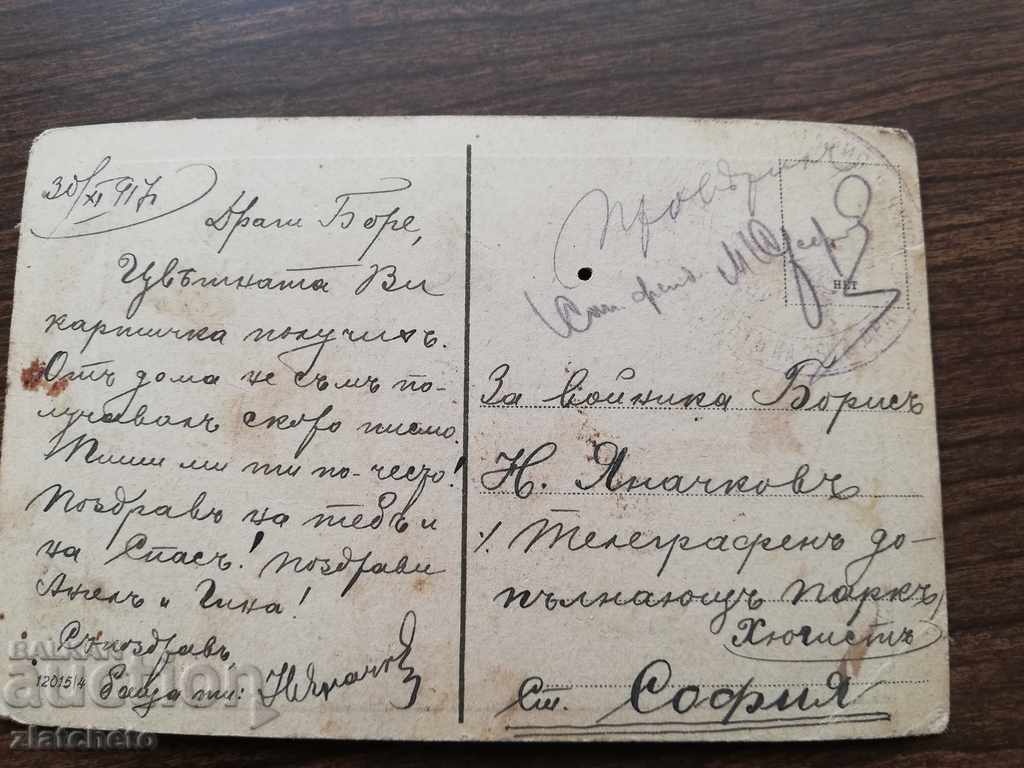 30/XI 917
Драги Боре,
Цвѣтната Ви
картичка получихъ.
Отъ дома не съмъ по-
лучавалъ скоро писмо.
Пиши ми ти по-често!
Поздравъ на тебъ и
на Спасъ! Поздрави
Ангелъ и Гина!
Съ поздравъ,
Баща ти:
12015/4
НЕТ
За войника Борисъ
Н. Яначковъ
⁒ Телеграфенъ до-
пълнающъ паркъ
Хючистъ
Ст. София
BALKAN
auction
zlatcheto